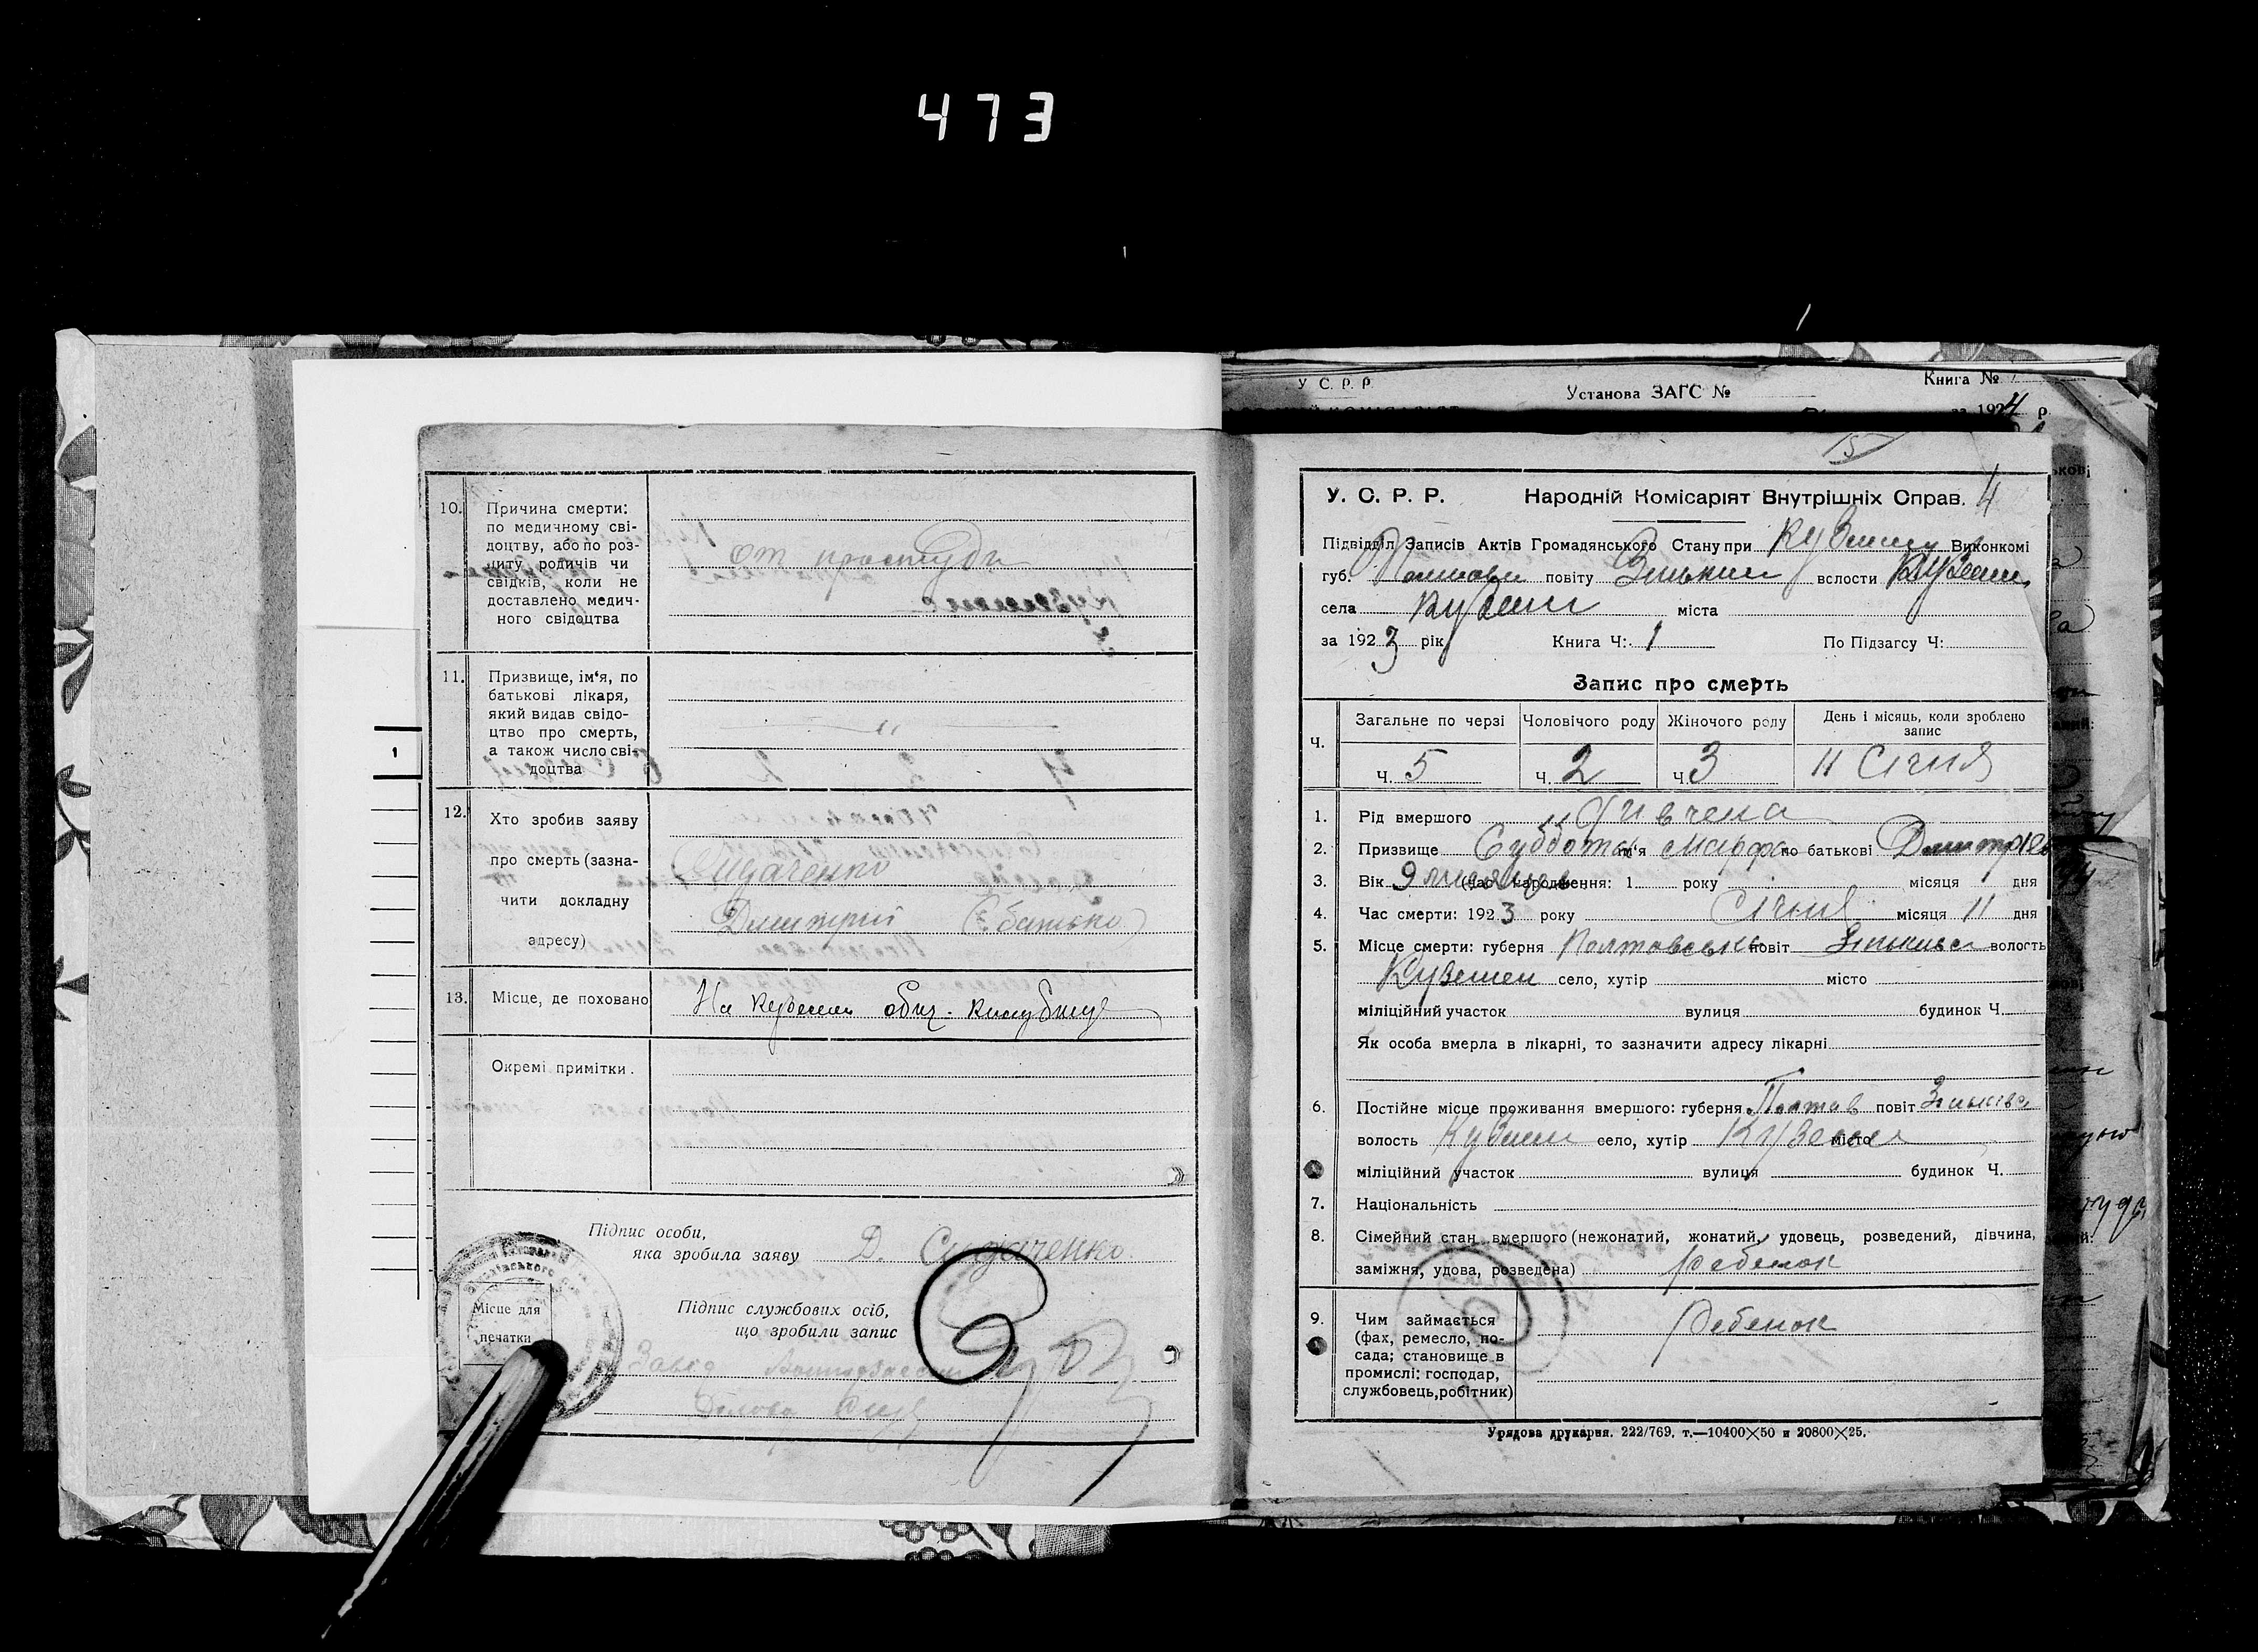 473
У. С. Р. Р.
Установа ЗАГС №
Книга №
за 1924 р.
10. Причина смерти:
по медичному сві-
доцтву, або по роз-
питу родичів чи
свідків, коли не
доставлено медич-
ного свідоцтва
от простуди
11. Призвище, ім'я, по
батькові лікаря,
який видав свідо-
цтво про смерть,
а також число сві-
доцтва
1
12. Хто зробив заяву
про смерть (зазна-
чити докладну
адресу)
Сидаченко
Дмитрий (батько)
13. Місце, де поховано
На Куземен общ. кладбищі
Окремі примітки.
Підпис особи,
яка зробила заяву Д. Сидаченко
Місце для
печатки
Підпис службових осіб,
що зробили запис
4
У. С. Р. Р. Народній Комісаріят Внутрішніх Справ.
Підвідділ Записів Актів Громадянського Стану при Виконкомі
губ. повіту волости
села міста
за 1923 рік Книга Ч: 1 По Підзагсу Ч:
Запис про смерть
Ч. Загальне по черзі Чоловічого роду Жіночого роду День і місяць, коли зроблено
запис
Ч. 5 Ч. 2 Ч. 3 11 Січня
1. Рід вмершого дивчена
2. Призвище Субботи ім'я Марфа по батькові Дмитріев
3. Вік 9 місяців (час народження: 1 року місяця дня
4. Час смерти: 1923 року Січня місяця 11 дня
5. Місце смерти: губерня Полтавська повіт Зіньківс волость
Куземен село, хутір місто
міліційний участок вулиця будинок Ч.
Як особа вмерла в лікарні, то зазначити адресу лікарні
6. Постійне місце проживання вмершого: губерня Полтав повіт Зіньківс
волость Куземен село, хутір Куземен місто
міліційний участок вулиця будинок Ч.
7. Національність
8. Сімейний стан вмершого (нежонатий, жонатий, удовець, розведений, дівчина,
заміжня, удова, розведена) ребенок
9. Чим займається
(фах, ремесло, по-
сада; становище в
промислі: господар,
службовець, робітник)
Ребенок
Урядова друкарня. 222/769. т.—10400×50 и 20800×25.